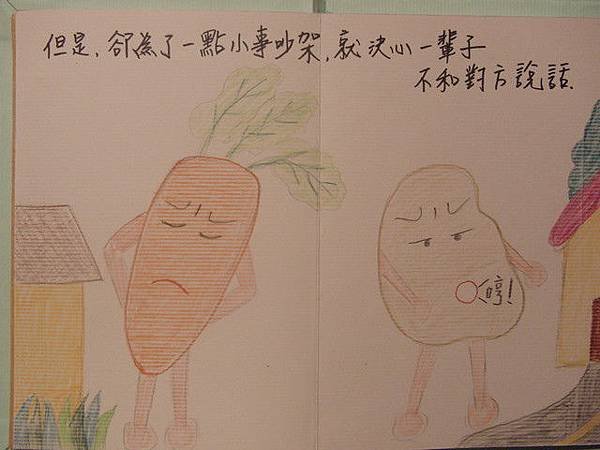 但是，卻為了一點小事吵架，就決心一輩子
不和對方說話．
哼！